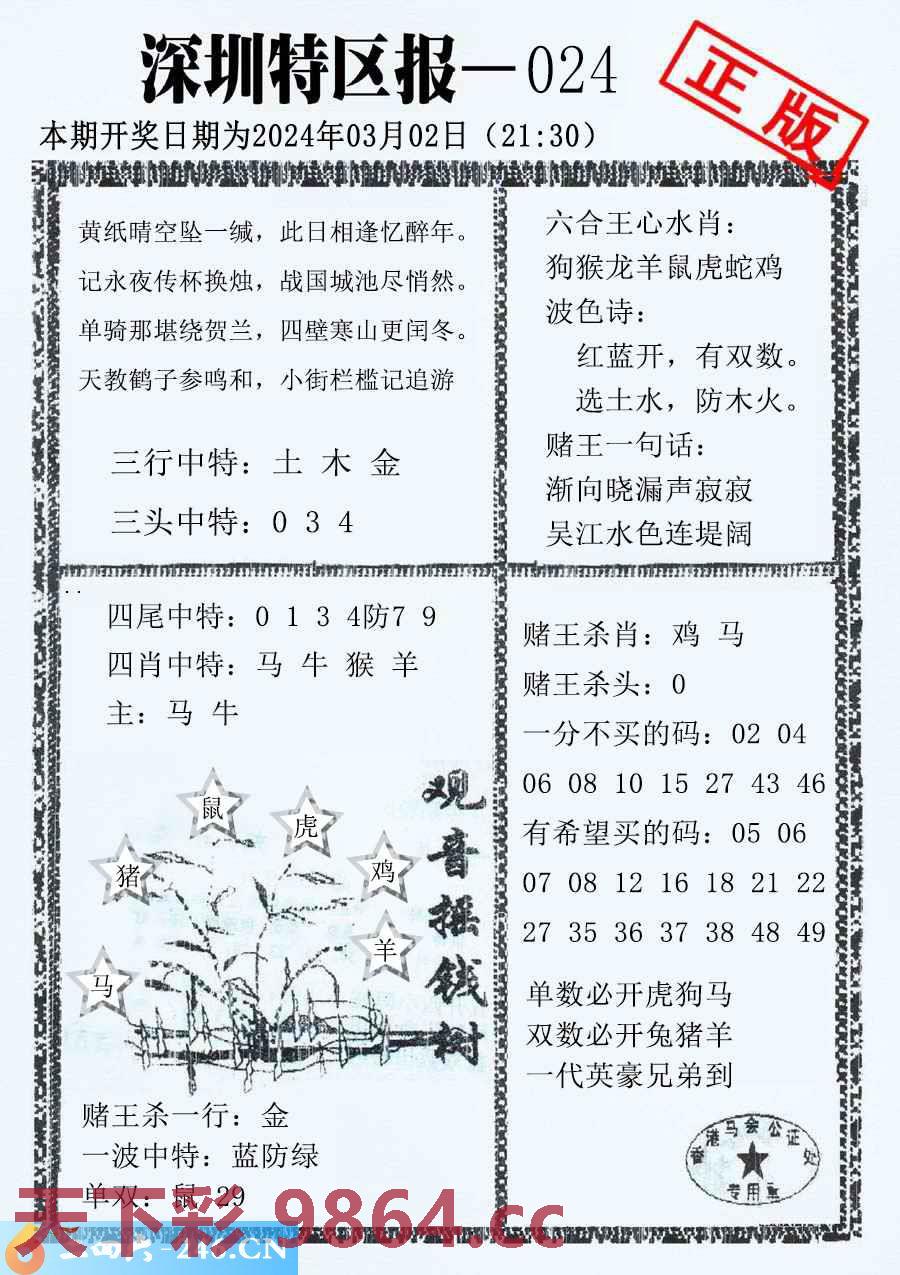 深圳特区报—024
正版
本期开奖日期为2024年03月02日（21:30）
黄纸晴空坠一缄，此日相逢忆醉年。
记永夜传杯换烛，战国城池尽悄然。
单骑那堪绕贺兰，四壁寒山更闰冬。
天教鹤子参鸣和，小街栏槛记追游
三行中特：土 木 金
三头中特：0 3 4
六合王心水肖：
狗猴龙羊鼠虎蛇鸡
波色诗：
红蓝开，有双数。
选土水，防木火。
赌王一句话：
渐向晓漏声寂寂
吴江水色连堤阔
四尾中特：0 1 3 4防7 9
四肖中特：马 牛 猴 羊
主：马 牛
鼠
虎
猪
鸡
羊
马
观音摇钱树
赌王杀一行：金
一波中特：蓝防绿
单双：鼠 29
赌王杀肖：鸡 马
赌王杀头：0
一分不买的码：02 04
06 08 10 15 27 43 46
有希望买的码：05 06
07 08 12 16 18 21 22
27 35 36 37 38 48 49
单数必开虎狗马
双数必开兔猪羊
一代英豪兄弟到
香港马会公证处
专用章
天下彩.9864.cc